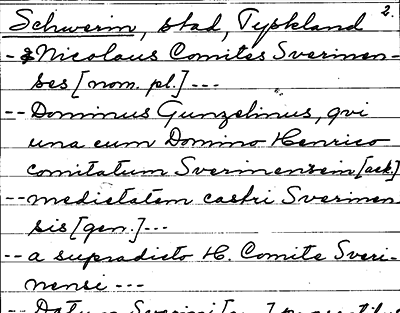 2.
Schwerin, stad, Tyskland
-- & Nicolaus Comites Sverinen-
ses [nom. pl.] ---
-- Dominus Gunzelinus, qvi
una cum Domino Henrico
comitatum Sverinensem [ack.]
-- medietatem castri Sverinen-
sis [gen.] ---
-- a supradicto H. Comite Sveri-
nensi ---
-- Datum Sverini